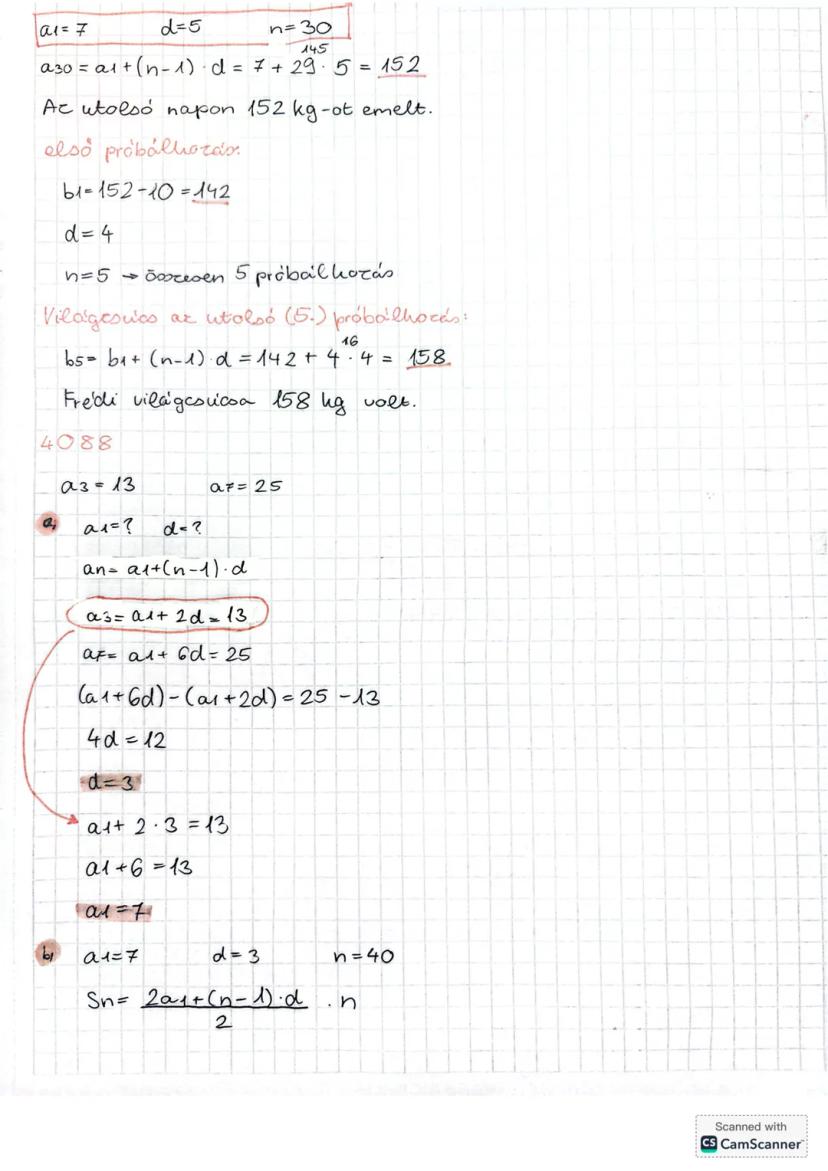 a1 = 7 d=5 n=30
145
a30 = a1+(n-1)·d = 7+29·5 = 152
Az utolsó napon 152 kg-ot emelt.
első próbálkozás:
b1=152-10=142
d=4
n=5 → összesen 5 próbálkozás
Világcsúcs az utolsó (5.) próbálkozás:
16
b5= b1+(n-1)·d=142+4·4 = 158
Frédi világcsúcsa 158 kg volt.
4088
a3=13 a7=25
a, a1=? d=?
an= a1+(n-1)·d
a3= a1+2d=13
a7= a1+6d=25
(a1+6d)-(a1+2d)=25-13
4d=12
d=3
a1+2·3=13
a1+6=13
a1=7
b, a1=7 d=3 n=40
Sn= 2a1+(n-1)·d / 2 · n
Scanned with
CS CamScanner